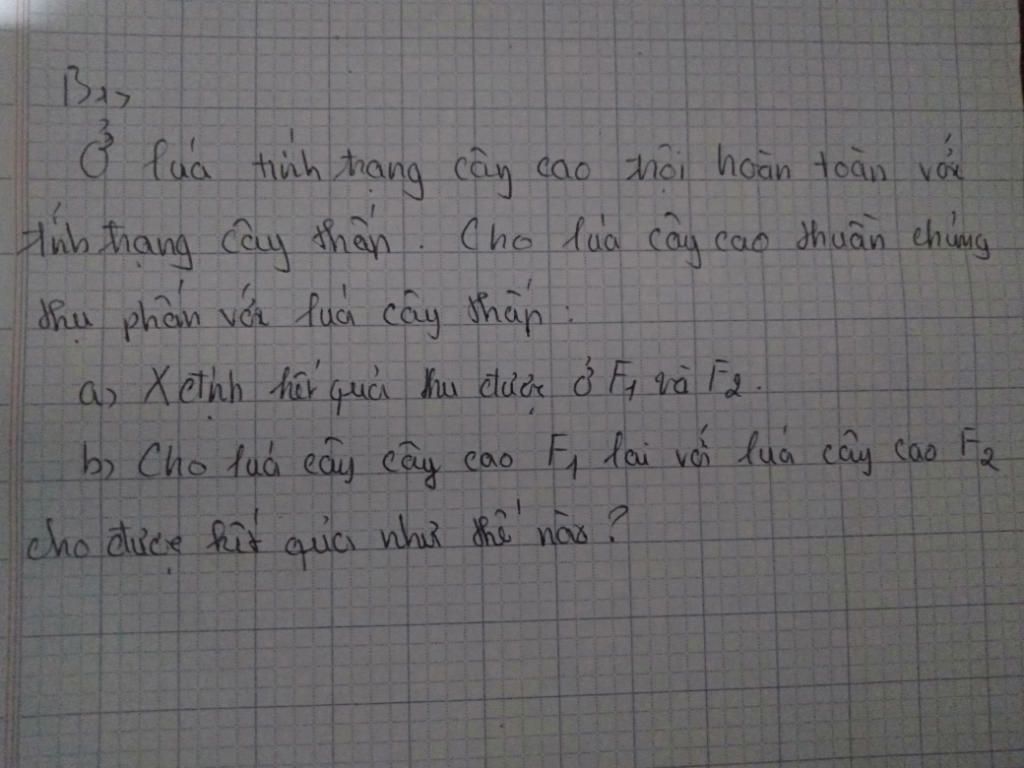 B1,
Ở lúa tính trạng cây cao trội hoàn toàn với
tính trạng cây thấp. Cho lúa cây cao thuần chủng
thụ phấn với lúa cây thấp:
a, Xđịnh kết quả thu được ở F1 và F2.
b, Cho luá cây cây cao F1 lai với luá cây cao F2
cho được kết quả như thế nào?